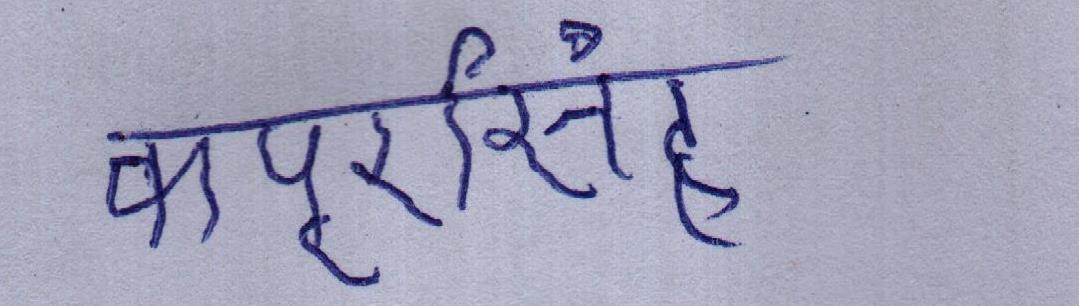 कपूरसिंह